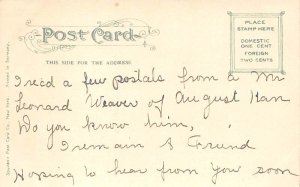 Post Card
THIS SIDE FOR THE ADDRESS
PLACE
STAMP HERE
DOMESTIC
ONE CENT
FOREIGN
TWO CENTS
I rec'd a few postals from a Mr
Leonard Weaver of August Kan
Do you know him,
I remain A Friend
Hoping to hear from you soon
Post Card Co. New York Printed in Germany.